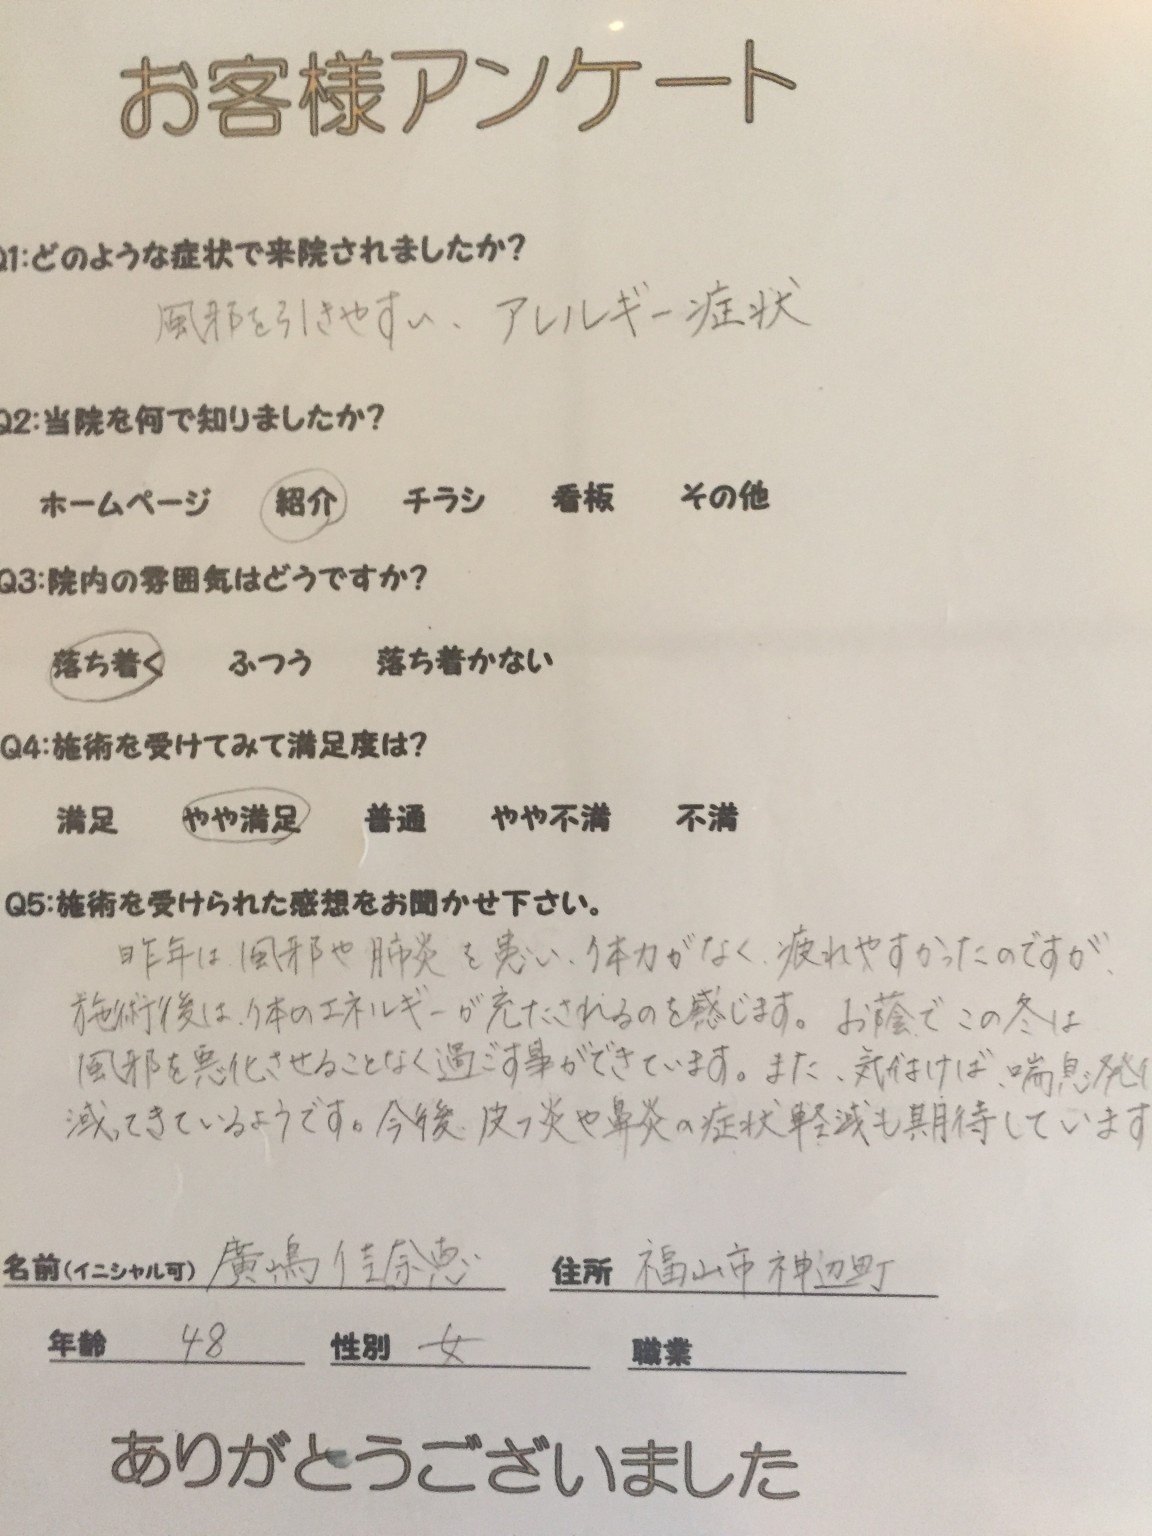 お客様アンケート
Q1:どのような症状で来院されましたか?
風邪を引きやすい、アレルギー症状
Q2:当院を何で知りましたか?
ホームページ 紹介 チラシ 看板 その他
Q3:院内の雰囲気はどうですか?
落ち着く ふつう 落ち着かない
Q4:施術を受けてみて満足度は?
満足 やや満足 普通 やや不満 不満
Q5:施術を受けられた感想をお聞かせ下さい。
昨年は風邪や肺炎を患い、体力がなく、疲れやすかったのですが、
施術後は、体のエネルギーが充たされるのを感じます。お蔭でこの冬は
風邪を悪化させることなく過ごす事ができています。また、気付けば、喘息発
減ってきているようです。今後、皮フ炎や鼻炎の症状軽減も期待しています
名前(イニシャル可) 廣嶋 佳奈恵 住所 福山市神辺町
年齢 48 性別 女 職業
ありがとうございました